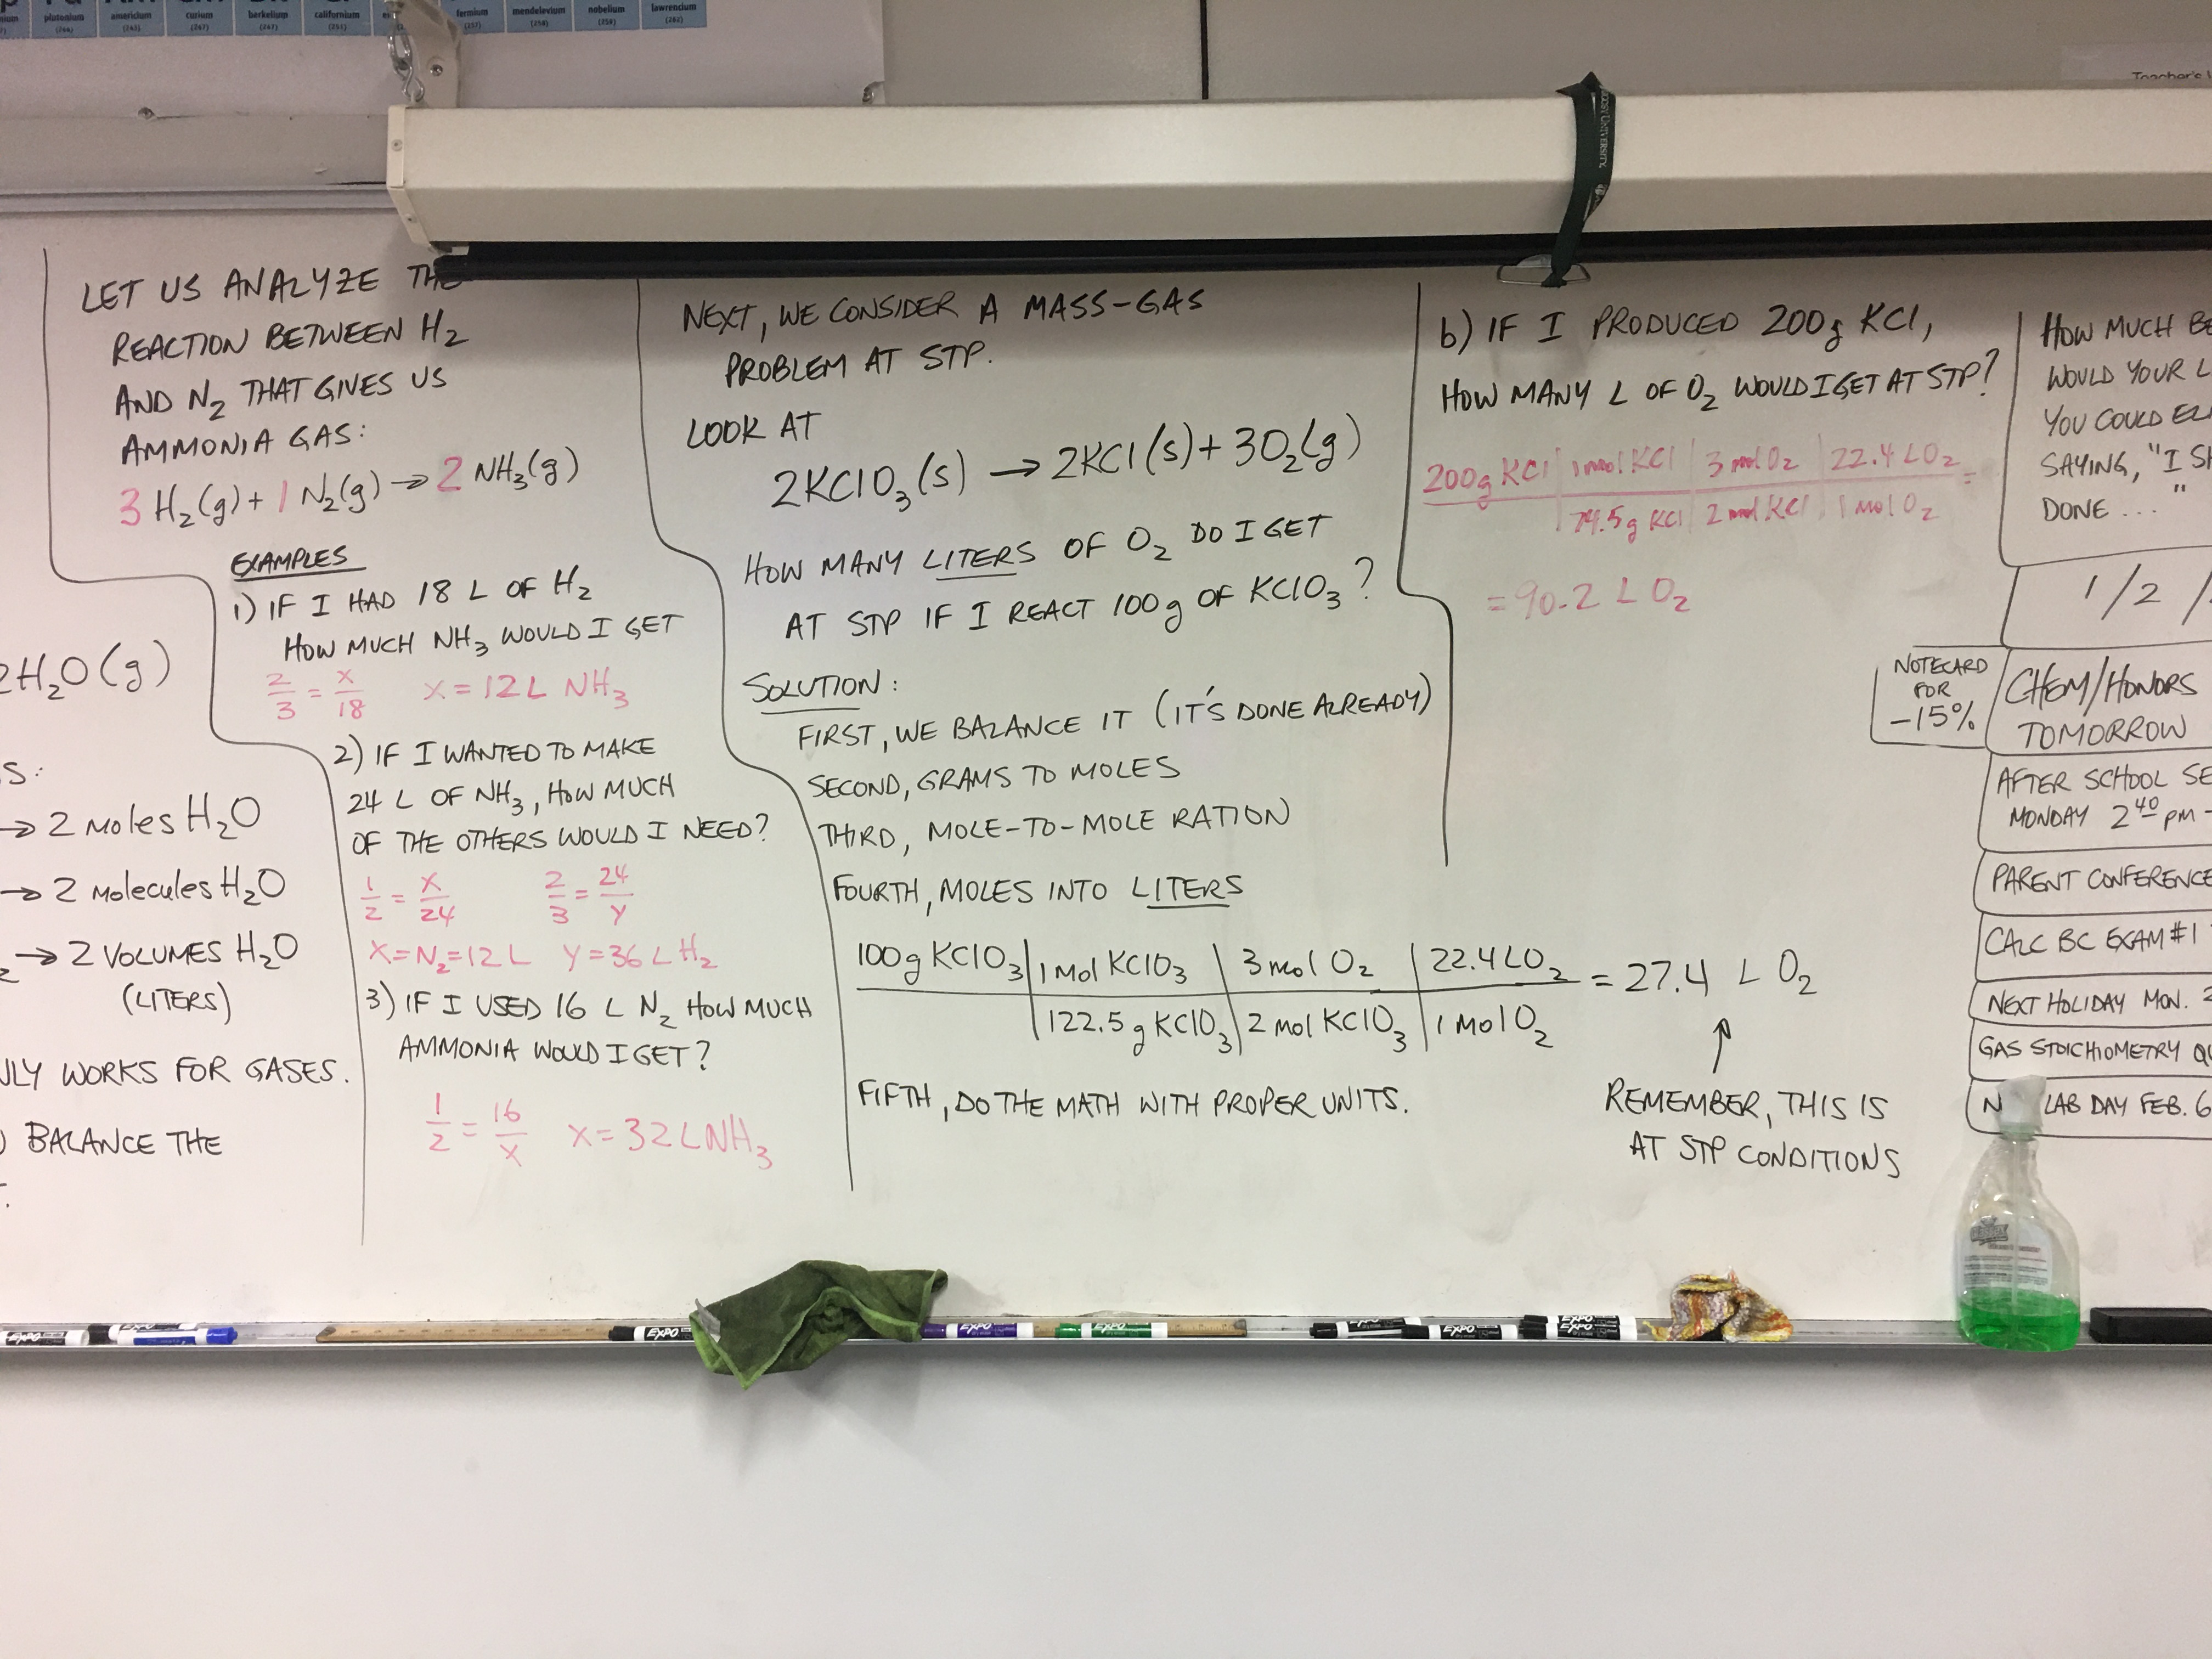 plutonium
americium
curium
berkelium
californium
fermium
mendelevium
nobelium
lawrencium
(244)
(243)
(247)
(247)
(251)
(257)
(258)
(259)
(262)
Teacher's
UNIVERSITY
LET US ANALYZE THE
REACTION BETWEEN H₂
AND N₂ THAT GIVES US
AMMONIA GAS:
3 H₂(g) + 1 N₂(g) → 2 NH₃(g)
EXAMPLES
1) IF I HAD 18 L OF H₂
HOW MUCH NH₃ WOULD I GET
2/3 = X/18 X = 12 L NH₃
2) IF I WANTED TO MAKE
24 L OF NH₃, HOW MUCH
OF THE OTHERS WOULD I NEED?
1/2 = X/24 2/3 = 24/Y
X = N₂ = 12 L Y = 36 L H₂
3) IF I USED 16 L N₂ HOW MUCH
AMMONIA WOULD I GET?
1/2 = 16/X X = 32 L NH₃
2H₂O(g)
S:
→ 2 moles H₂O
→ 2 molecules H₂O
→ 2 VOLUMES H₂O
(LITERS)
NLY WORKS FOR GASES.
BALANCE THE
NEXT, WE CONSIDER A MASS-GAS
PROBLEM AT STP.
LOOK AT
2KClO₃(s) → 2KCl(s) + 3O₂(g)
HOW MANY LITERS OF O₂ DO I GET
AT STP IF I REACT 100g OF KClO₃?
SOLUTION:
FIRST, WE BALANCE IT (IT'S DONE ALREADY)
SECOND, GRAMS TO MOLES
THIRD, MOLE-TO-MOLE RATION
FOURTH, MOLES INTO LITERS
100g KClO₃ | 1 mol KClO₃ | 3 mol O₂ | 22.4 L O₂ = 27.4 L O₂
122.5 g KClO₃ | 2 mol KClO₃ | 1 mol O₂
FIFTH, DO THE MATH WITH PROPER UNITS.
REMEMBER, THIS IS
AT STP CONDITIONS
b) IF I PRODUCED 200g KCl,
HOW MANY L OF O₂ WOULD I GET AT STP?
200g KCl | 1 mol KCl | 3 mol O₂ | 22.4 L O₂ =
74.5g KCl | 2 mol KCl | 1 mol O₂
= 90.2 L O₂
HOW MUCH BE
WOULD YOUR L
YOU COULD EL
SAYING, "I SH
DONE ... "
1/2/
NOTECARD
FOR
-15%
CHEM/HONORS
TOMORROW
AFTER SCHOOL SE
MONDAY 2⁴⁰ pm -
PARENT CONFERENCE
CALC BC EXAM #1
NEXT HOLIDAY MON. 2
GAS STOICHIOMETRY QU
N LAB DAY FEB. 6
EXPO
EXPO
EXPO
EXPO
EXPO
EXPO
EXPO
EXPO